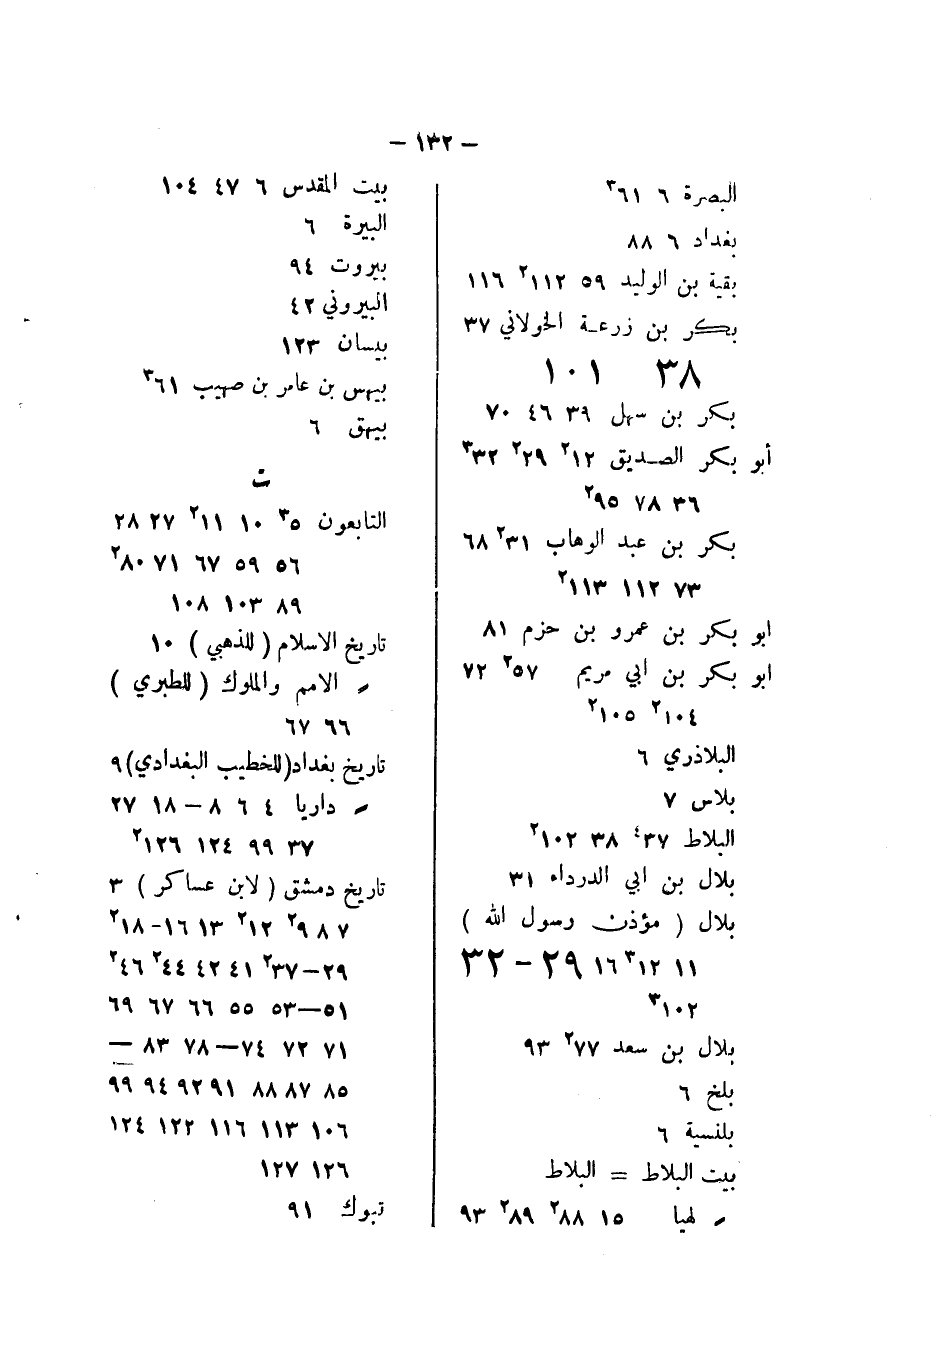 - ١٣٢ -
البصرة ٦ ٦١³
بغداد ٦ ٨٨
بقية بن الوليد ٥٩ ١١٢² ١١٦
بكر بن زرعة الخولاني ٣٧
٣٨ ١٠١
بكر بن سهل ٣٩ ٤٦ ٧٠
أبو بكر الصديق ١٢² ٢٩² ٣٢³
٣٦ ٧٨ ٩٥²
بكر بن عبد الوهاب ٣١² ٦٨
٧٣ ١١٢ ١١٣²
ابو بكر بن عمرو بن حزم ٨١
ابو بكر بن ابي مريم ٥٧² ٧٢
١٠٤² ١٠٥²
البلاذري ٦
بلاس ٧
البلاط ٣٧⁴ ٣٨ ١٠٢²
بلال بن ابي الدرداء ٣١
بلال ( مؤذن رسول الله )
١١ ١٢³ ١٦ ٢٩ - ٣٢
١٠٢³
بلال بن سعد ٧٧² ٩٣
بلخ ٦
بلنسية ٦
بيت البلاط = البلاط
〃 لهيا ١٥ ٨٨² ٨٩² ٩٣
بيت المقدس ٦ ٤٧ ١٠٤
البيرة ٦
بيروت ٩٤
البيروني ٤٢
بيسان ١٢٣
بيهس بن عامر بن صهيب ٦١³
بيهق ٦
ت
التابعون ٥³ ١٠ ١١² ٢٧ ٢٨
٥٦ ٥٩ ٦٧ ٧١ ٨٠²
٨٩ ١٠٣ ١٠٨
تاريخ الاسلام ( للذهبي ) ١٠
〃 الامم والملوك ( للطبري )
٦٦ ٦٧
تاريخ بغداد(للخطيب البغدادي)٩
〃 داريا ٤ ٦ ٨ – ١٨ ٢٧
٣٧ ٩٩ ١٢٤ ١٢٦²
تاريخ دمشق ( لابن عساكر ) ٣
٧ ٨ ٩² ١٢² ١٣ ١٦-١٨²
٢٩–٣٧² ٤١ ٤٢ ٤٤² ٤٦²
٥١–٥٣ ٥٥ ٦٦ ٦٧ ٦٩
٧١ ٧٢ ٧٤–٧٨ ٨٣ –
٨٥ ٨٧ ٨٨ ٩١ ٩٢ ٩٤ ٩٩
١٠٦ ١١٣ ١١٦ ١٢٢ ١٢٤
١٢٦ ١٢٧
تبوك ٩١